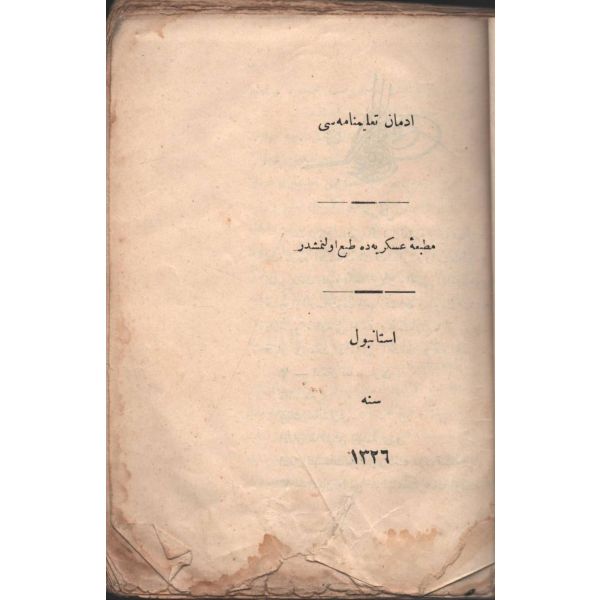 ادمان تعليمنامه‌سی
مطبعهٔ عسكريه‌ده طبع اولنمشدر
استانبول
سنه
١٣٢٦